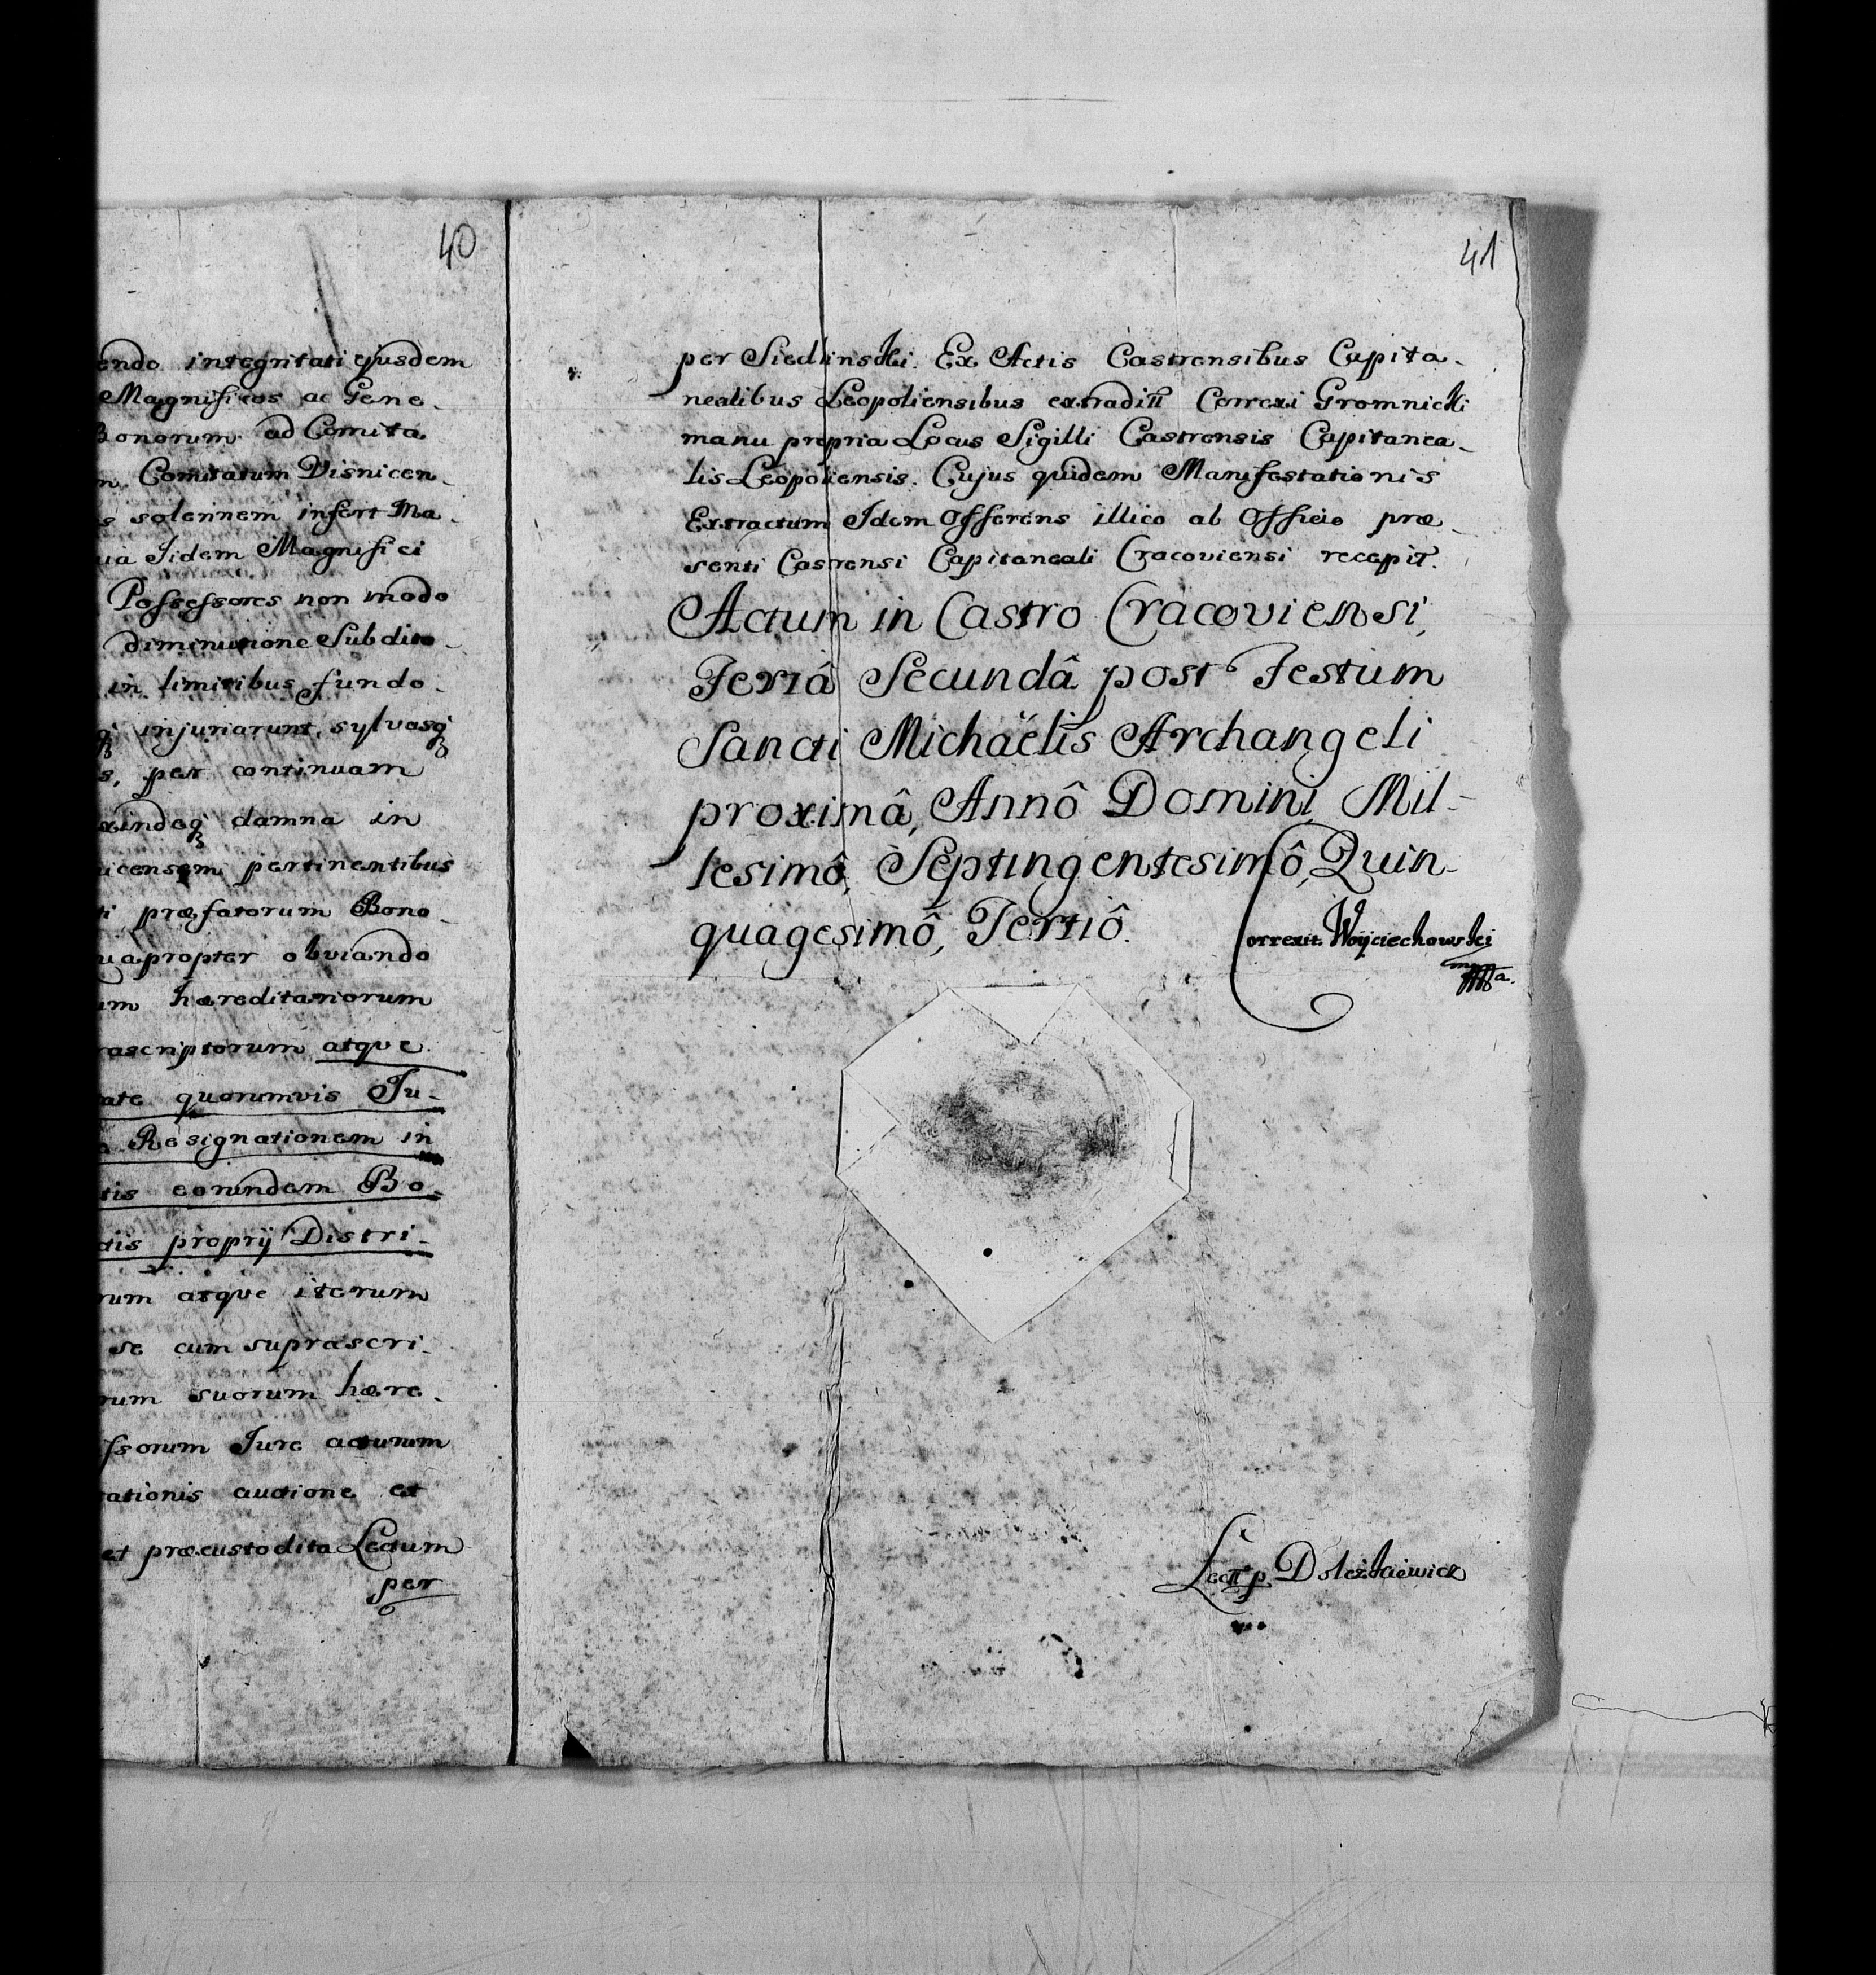 40
endo integritati ejusdem
Magnificos ac Gene-
Bonorum ad Comita
Comitatum Visnicen-
solennem infert Ma-
Iidem Magnifici
Possessores non modo
diminutione Subdito-
in limitibus fundo-
injuriarunt, sylvasq
per continuam
exindeq damna in
icensem pertinentibus
præfatorum Bono-
uapropter obviando
hæreditariorum
rascriptorum atque
ate quorumvis Ju-
Resignationem in
tis eorundem Bo-
ctis proprij Distri-
rum atque iterum
se cum suprascri-
rum suorum hære-
ssorum Jure acturum
tationis auctione et
et præcustodita Lectum
per
41
per Siedlinski. Ex Actis Castrensibus Capita-
nealibus Leopoliensibus extraditt Correxi Gromnicki
manu propria Locus Sigilli Castrensis Capitanea-
lis Leopoliensis. Cujus quidem Manifestationis
Extractum Idem Offerens illico ab Officio præ-
senti Castrensi Capitaneali Cracoviensi recepit.
Actum in Castro Cracoviensi,
Feriâ Secundâ post Festum
Sancti Michaëlis Archangeli
proximâ, Annô Domini Mil-
lesimô, Septingentesimô, Quin-
quagesimô, Tertiô.
Correxit Woyciechowski
mppa.
Lectt p